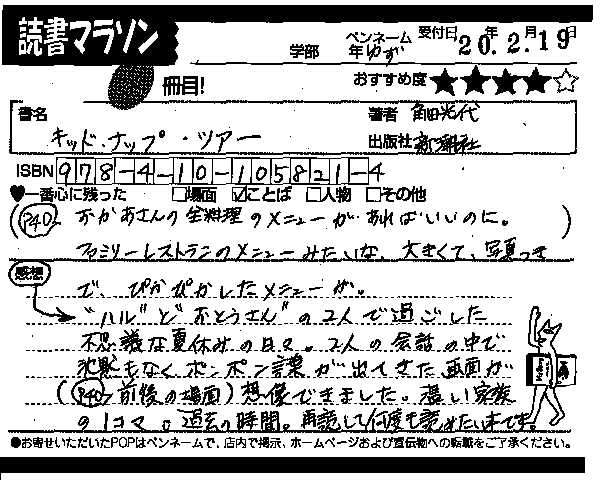 読書マラソン
学部 年 ペンネーム ゆず 受付日 20年2月19日
冊目! おすすめ度 ★★★★☆
書名 キッド・ナップ・ツアー
著者 角田光代
出版社 新潮社
ISBN 978-4-10-105821-4
♥一番心に残った □場面 ☑ことば □人物 □その他
(P40 おかあさんの全料理のメニューがあればいいのに。)
ファミリーレストランのメニューみたいな、大きくて、写真つき
感想
で、ぴかぴかしたメニューが。
"ハル"と"おとうさん"の2人で過ごした
不思議な夏休みの日々。2人の会話の中で
もなくポンポン言葉が出てきた画面が
(P40 前後の場面)想像できました。 家族
の1コマ。過去の時間。再読して何度も読めた本です。
●お寄せいただいたPOPはペンネームで、店内で掲示、ホームページおよび宣伝物への転載をご了承ください。